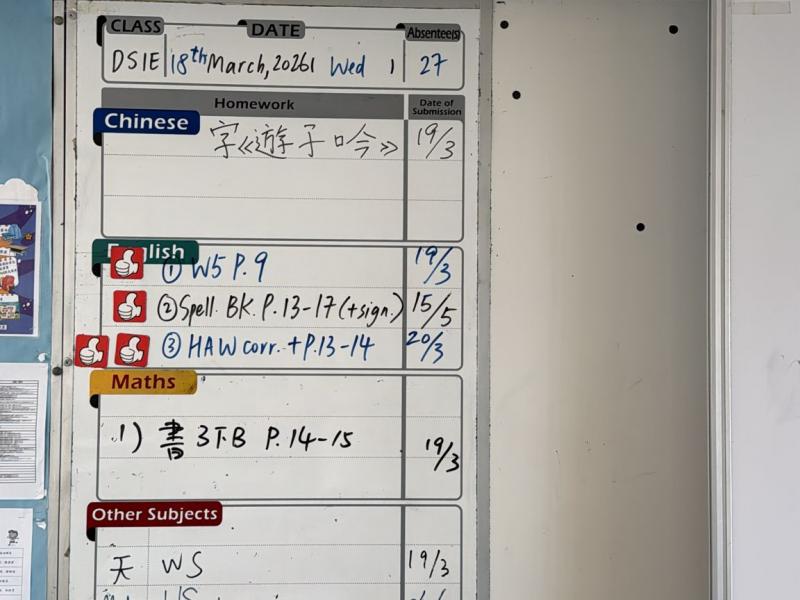 CLASS DATE Absentee(s)
DSIE 18th March, 2026 Wed 27
Homework Date of Submission
Chinese
字《遊子吟》 19/3
English
① W5 P.9 19/3
② Spell. BK. P.13-17 (+sign.) 15/5
③ HAW corr. + P.13-14 20/3
Maths
1) 書 3下B P.14-15 19/3
Other Subjects
天 WS 19/3